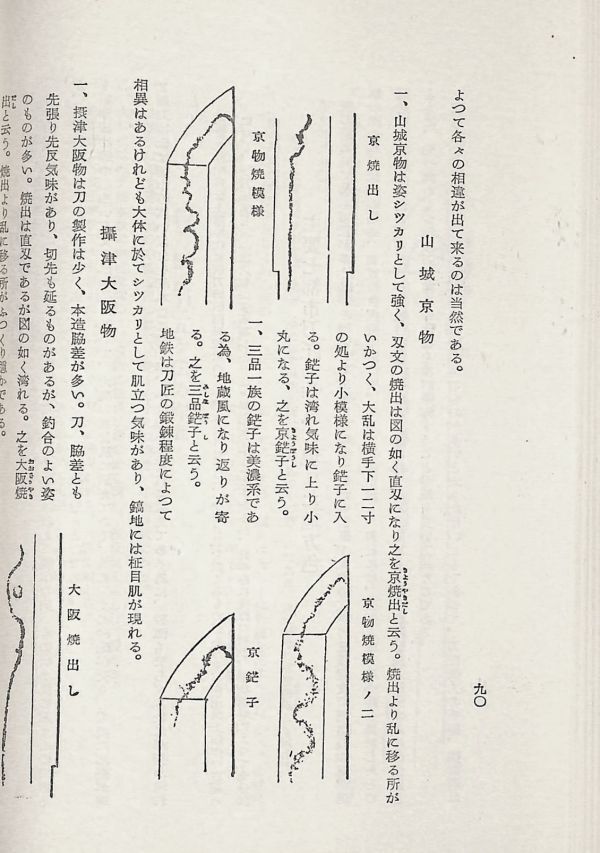 よつて各々の相違が出て来るのは当然である。
山城京物
一、山城京物は姿シツカリとして強く、刃文の焼出は図の如く直刃になり之を京焼出と云う。焼出より乱に移る所が
いかつく、大乱は横手下一二寸
の処より小模様になり鋩子に入
る。鋩子は湾れ気味に上り小
丸になる、之を京鋩子と云う。
一、三品一族の鋩子は美濃系であ
る為、地蔵風になり返りが寄
る。之を三品鋩子と云う。
地鉄は刀匠の鍛錬程度によつて
相異はあるけれども大体に於てシツカリとして肌立つ気味があり、鎬地には柾目肌が現れる。
京焼出し
京物焼模様
京物焼模様ノ二
京鋩子
攝津大阪物
一、摂津大阪物は刀の製作は少く、本造脇差が多い。刀、脇差とも
先張り先反気味があり、切先も延るものがあるが、釣合のよい姿
のものが多い。焼出は直刃であるが図の如く湾れる。之を大阪焼
出と云う。焼出より乱に移る所がふつくり穏かである。
大阪焼出し
九〇